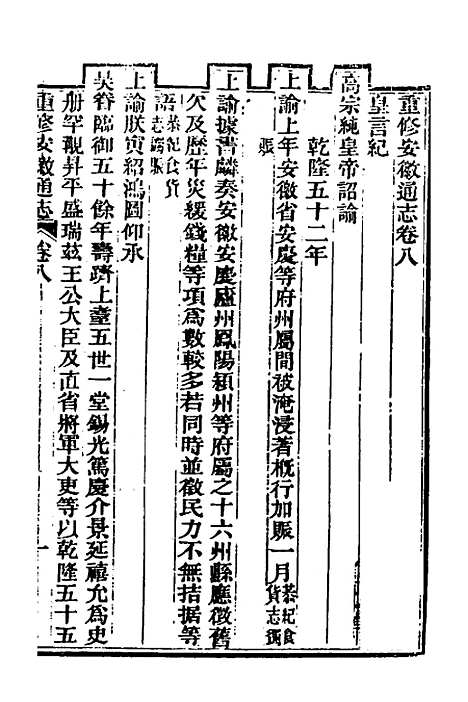 重修安徽通志卷八
皇言紀
高宗純皇帝詔諭
乾隆五十二年
上諭上年安徽省安慶等府州屬間被淹浸著概行加賑一月恭紀食貨志蠲
賑
上諭據書麟奏安徽安慶廬州鳳陽潁州等府屬之十六州縣應徵舊
欠及歷年災緩錢糧等項爲數較多若同時並徵民力不無拮据等
語恭紀食貨志蠲賑
上諭朕寅紹鴻圖仰承
昊眷臨御五十餘年壽躋上耋五世一堂錫光篤慶介景延禧允爲史
册罕觀昇平盛瑞茲王公大臣及直省將軍大吏等以乾隆五十五
重修安徽通志 卷八 一